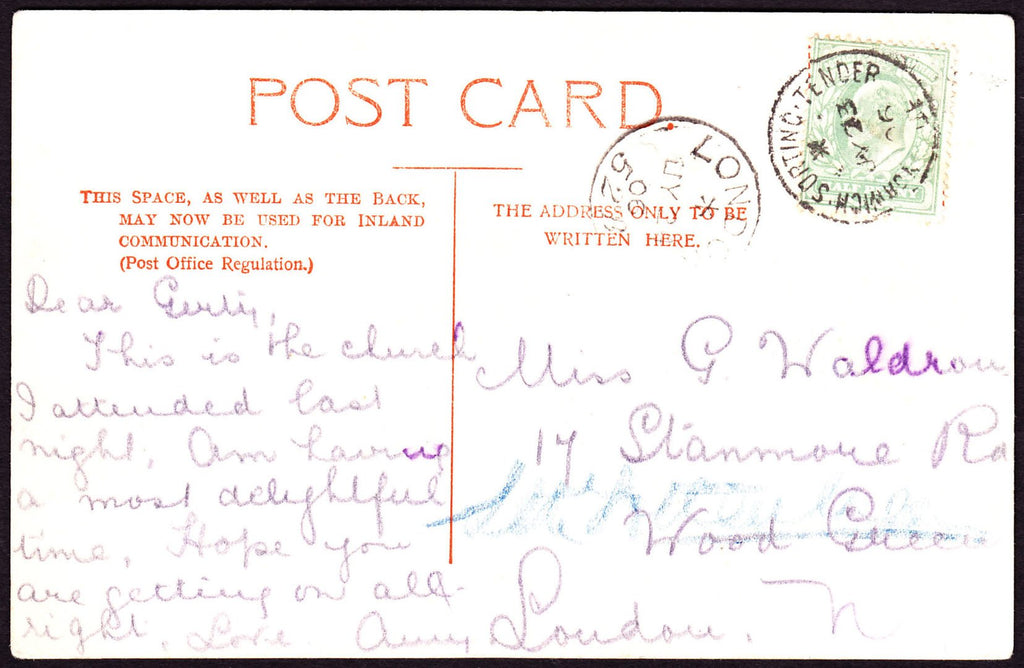 POST CARD
THIS SPACE, AS WELL AS THE BACK,
MAY NOW BE USED FOR INLAND
COMMUNICATION.
(Post Office Regulation.)
THE ADDRESS ONLY TO BE
WRITTEN HERE.
LONDO
X
JY
06
52
NORWICH SORTING TENDER
JY 23
06
Dear Gerty,
This is the church
I attended last
night. Am having
a most delightful
time, Hope you
are getting on all-
right. Love Amy
Miss G Waldron
17 Stanmore Rd
Wood Green
London. N